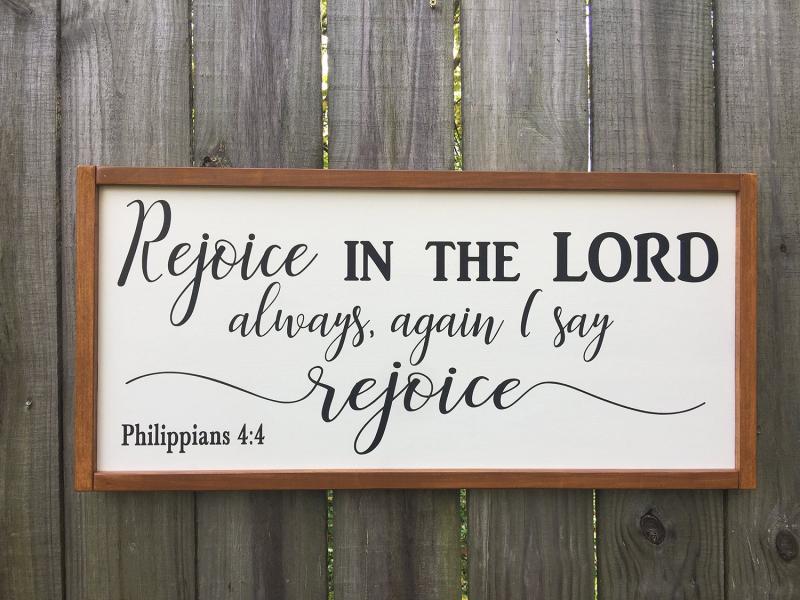 Rejoice IN THE LORD
always, again I say
rejoice
Philippians 4:4